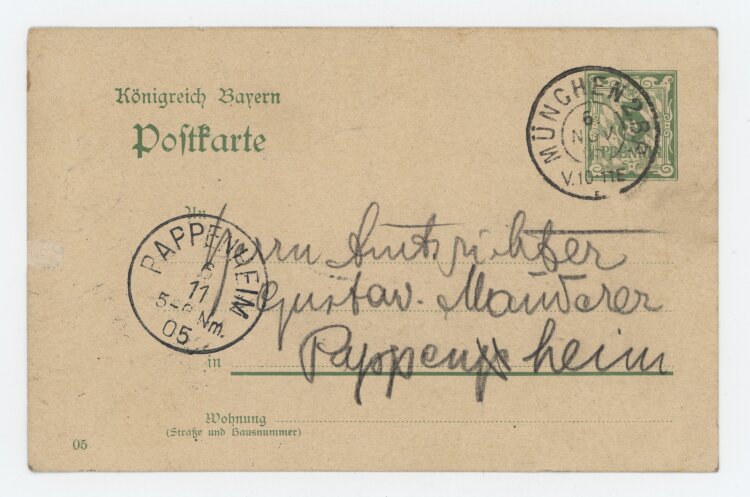 Königreich Bayern
Postkarte
MÜNCHEN 2 B.P.
6
NOV.
V.10-11
E
An
Herrn Amtsrichter
Gustav Mauderer
PAPPENHEIM
6
11
5-6 Nm.
05
in
Pappenheim
Wohnung
(Straße und Hausnummer)
05